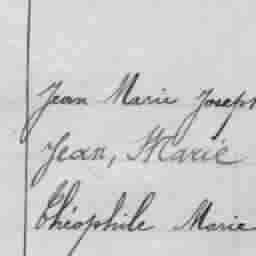 Jean Marie Joseph
Jean, Marie
Théophile Marie